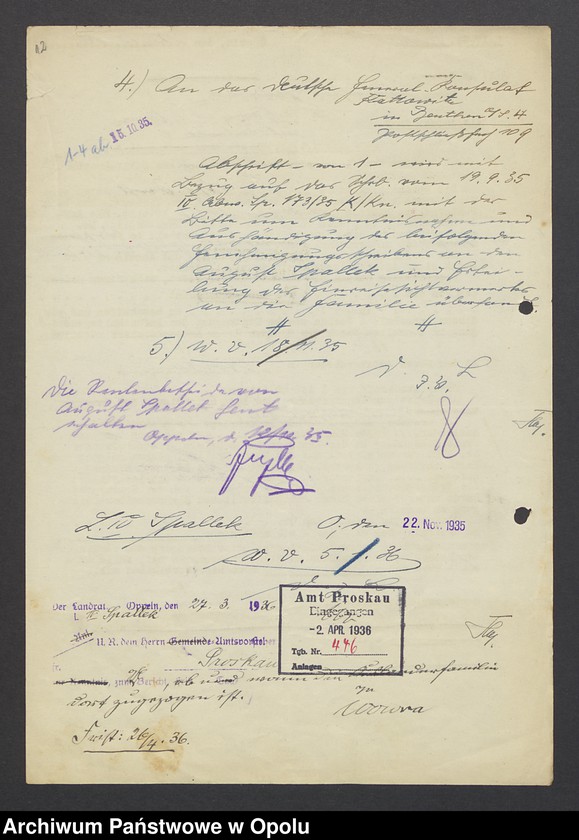 12
4.) An das Deutsche General-Konsulat
Kattowitz
in Beuthen O/S. 4
Postschließfach 109
1-4 ab 15.10.35.
Abschrift von 1 wird mit
Bezug auf das Schrb. vom 19.9.35
173/35 K/Kn. mit der
Bitte um Kenntnisnahme und
Aushändigung des beifolgenden
Genehmigungsschreibens an den
August Spallek und Ertei-
lung des Einreisesichtvermerkes
an die Familie übersandt.
5.) W. v. 18/11.35
D. L.
J. V.
Die von
August Spallek hat
erhalten
Oppeln, d. 35.
L. IV Spallek
O, den 22. Nov. 1935
W. v. 5. 1. 36
Der Landrat. Oppeln, den 27. 3. 1936
L. Spallek
U. R. dem Herrn Gemeinde-Amtsvorsteher
Proskau
Amt Proskau
Eingegangen
-2. APR. 1936
Tgb. Nr. 446
Anlagen
zum Bericht, ob und wann die
dort zugezogen ist.
Frist: 26/4.36.
Archiwum Państwowe w Opolu